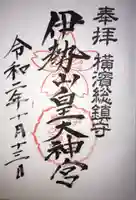 奉拝 横濱総鎮守
伊勢山皇大神宮
令和二年十月十三日